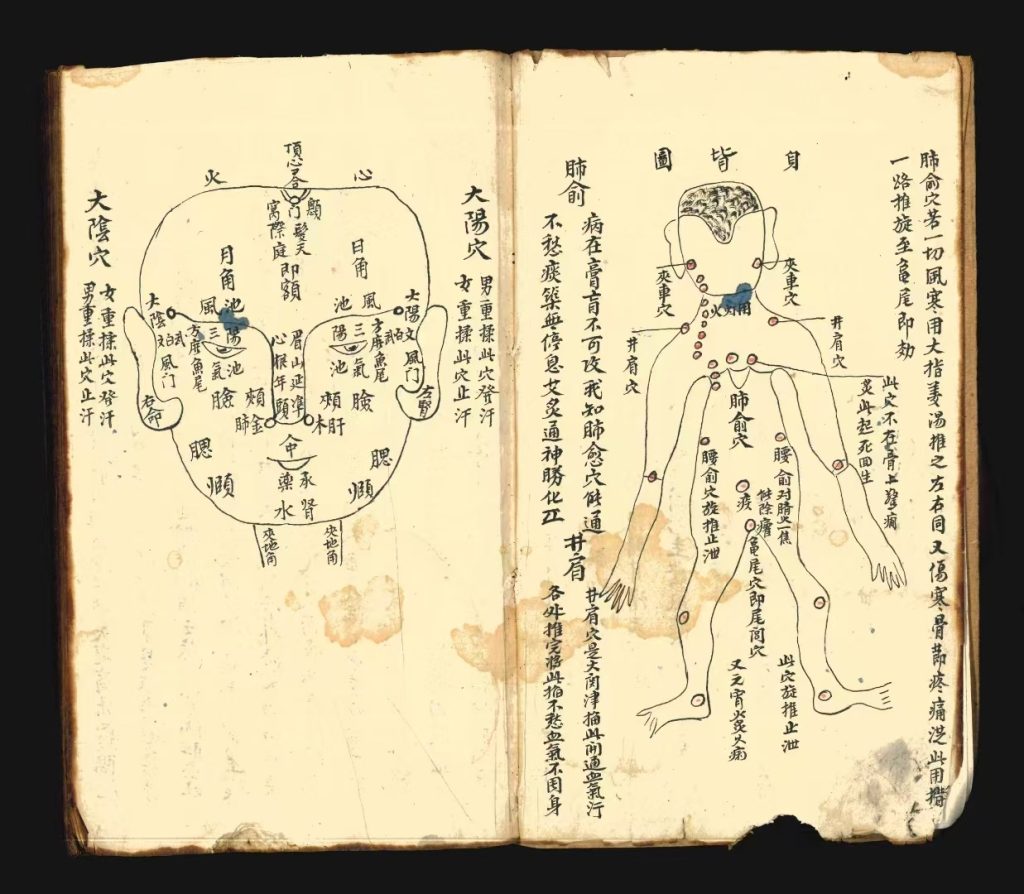 肺俞穴若一切風寒用大指姜湯推之左右同又傷寒骨節疼痛從此用揩
一路推旋至龜尾即劾
身背圖
夾車穴
夾車穴
井肩穴
井肩穴
此穴不在骨上
灸此起死回生
肺俞穴
腰俞穴旋推止泄
腰俞对臍
龜尾穴即尾闾穴
此穴旋推止泄
肺俞
病在膏盲不可攻我知肺愈穴能通
不愁痰築無停息艾灸通神勝化工
井肩
井肩穴是大関津掐此開通血氣行
各处推完將此掐不愁血氣不周身
大陽穴
男重揉此穴發汗
女重揉此穴止汗
心
火
頂心
門
天庭
即額
日角
月角
風池
風池
三陽
三陽
氣池
氣池
大陽
大陰
方廣魚尾
方廣魚尾
風门
風门
左腎
右命
眉山延準
心
年
臉
臉
頰
頰
肝木
肺金
命
承漿
腎水
腮
腮
夾地角
夾地角
大陰穴
女重揉此穴發汗
男重揉此穴止汗